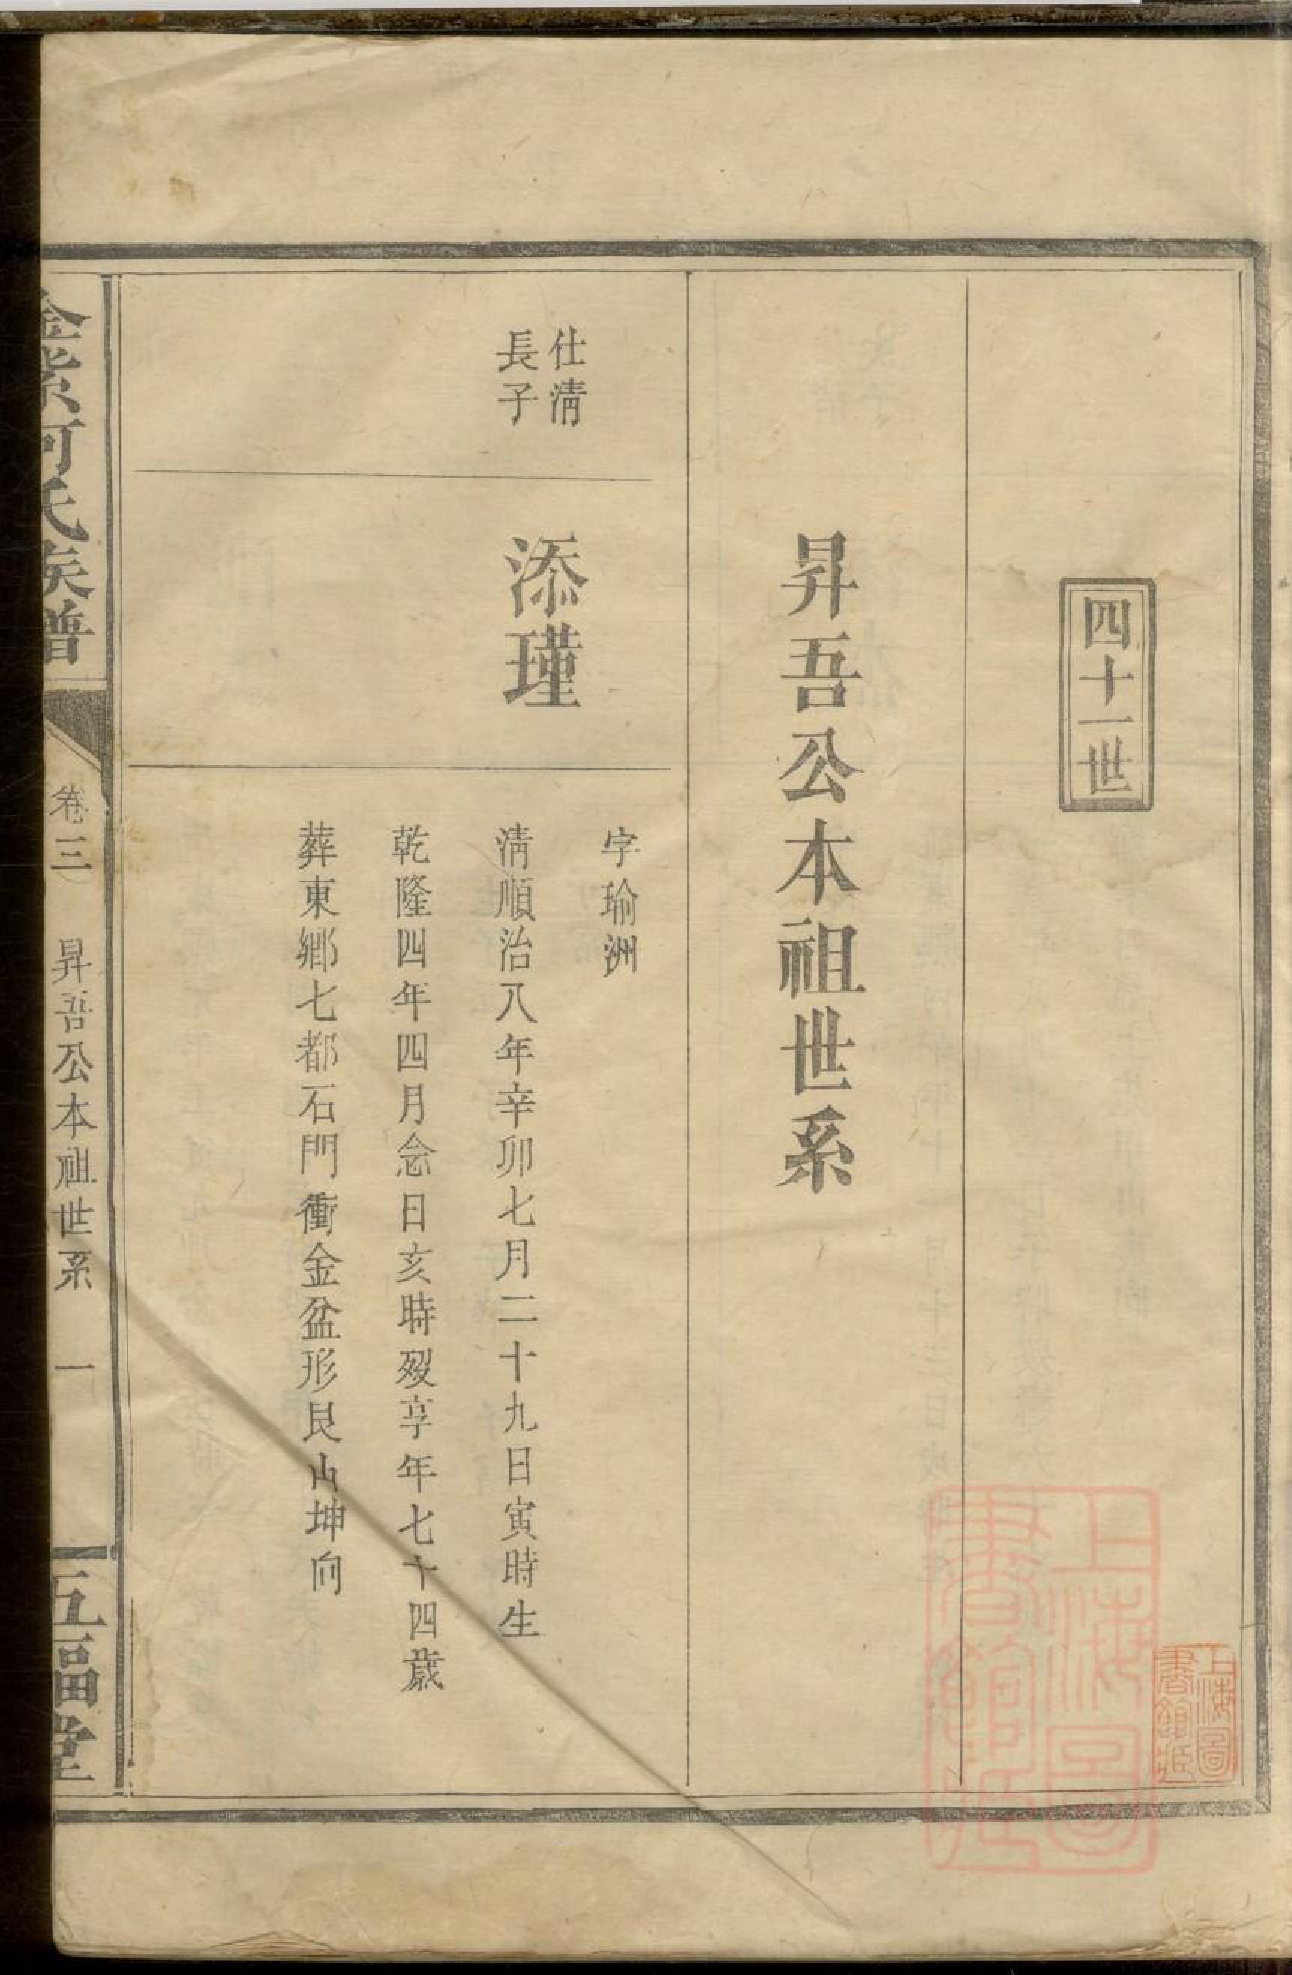 四十一世
昇吾公本祖世系
仕淸
長子
添瑾
字瑜洲
淸順治八年辛卯七月二十九日寅時生
乾隆四年四月念日亥時歿享年七十四歲
葬東鄉七都石門衝金盆形艮山坤向
金紫何氏族譜
卷三
昇吾公本祖世系
一
五福堂
上海圖書館藏
上海圖書館藏